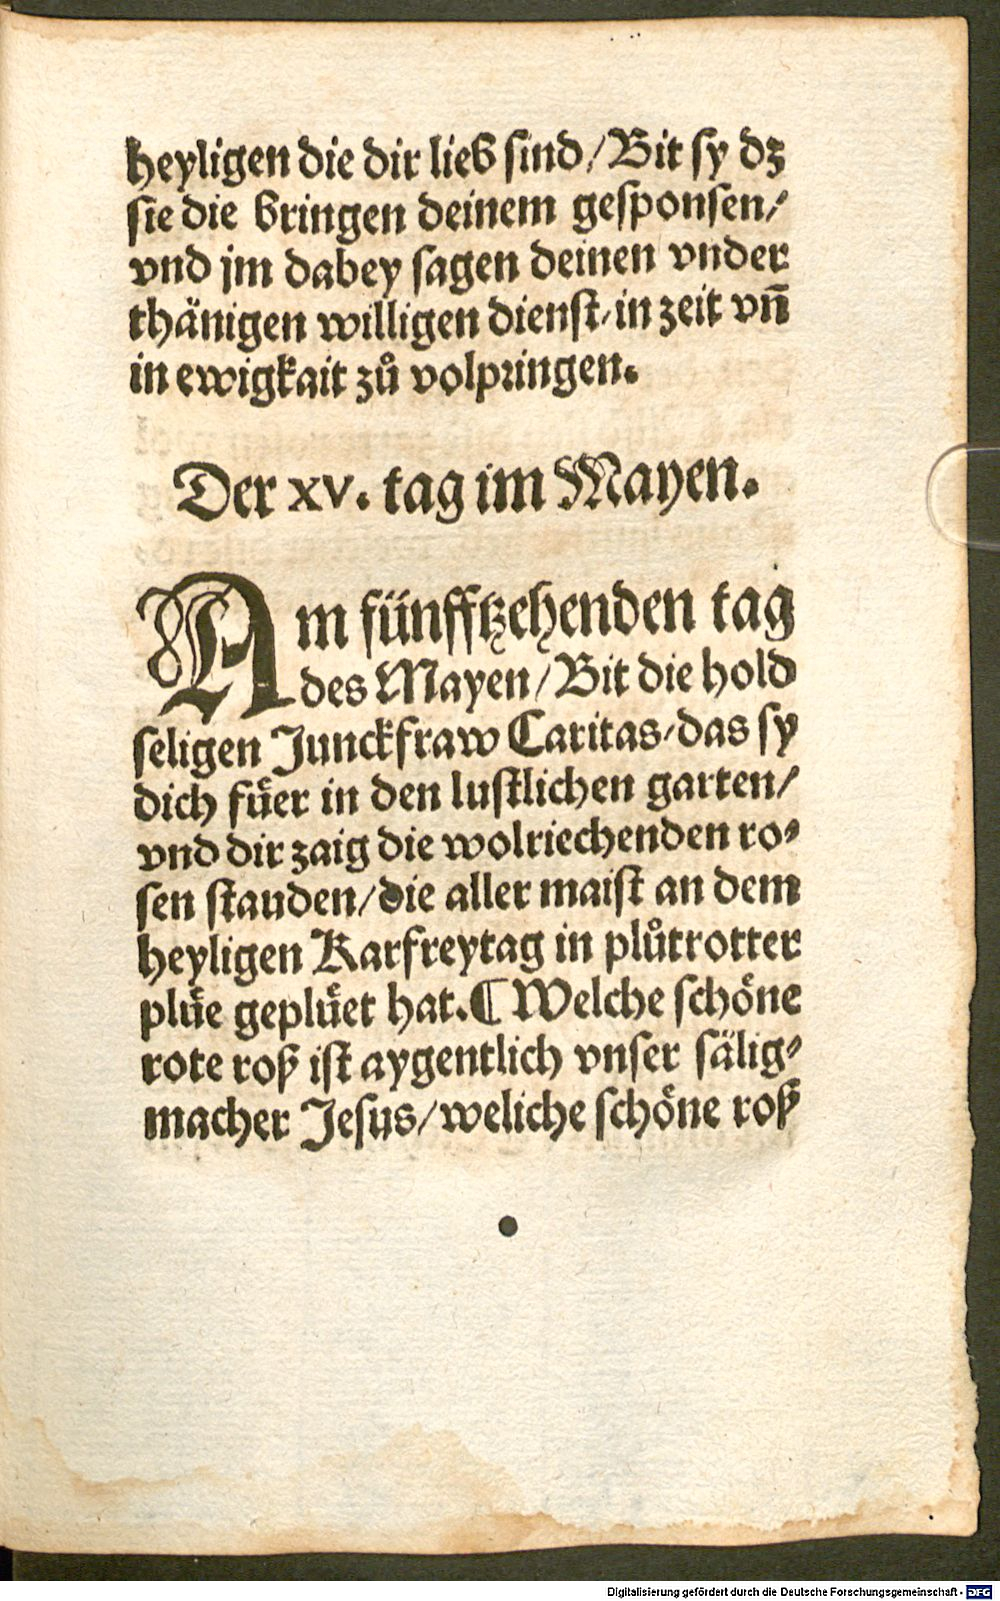 heyligen die dir lieb sind / Bit sy dz
sie die bringen deinem gesponsen /
vnd jm dabey sagen deinen vnder
thänigen willigen dienst / in zeit vñ
in ewigkait zů volpringen.
Der xv. tag im Mayen.
Am fünfftzehenden tag
des Mayen / Bit die hold
seligen Junckfraw Caritas / das sy
dich fuͤer in den lustlichen garten /
vnd dir zaig die wolriechenden ro⸗
sen stauden / die aller maist an dem
heyligen Karfreytag in plůtrotter
pluͤe gepluͤet hat. ¶ Welche schoͤne
rote roß ist aygentlich vnser sälig⸗
macher Jesus / weliche schoͤne roß
Digitalisierung gefördert durch die Deutsche Forschungsgemeinschaft - DFG